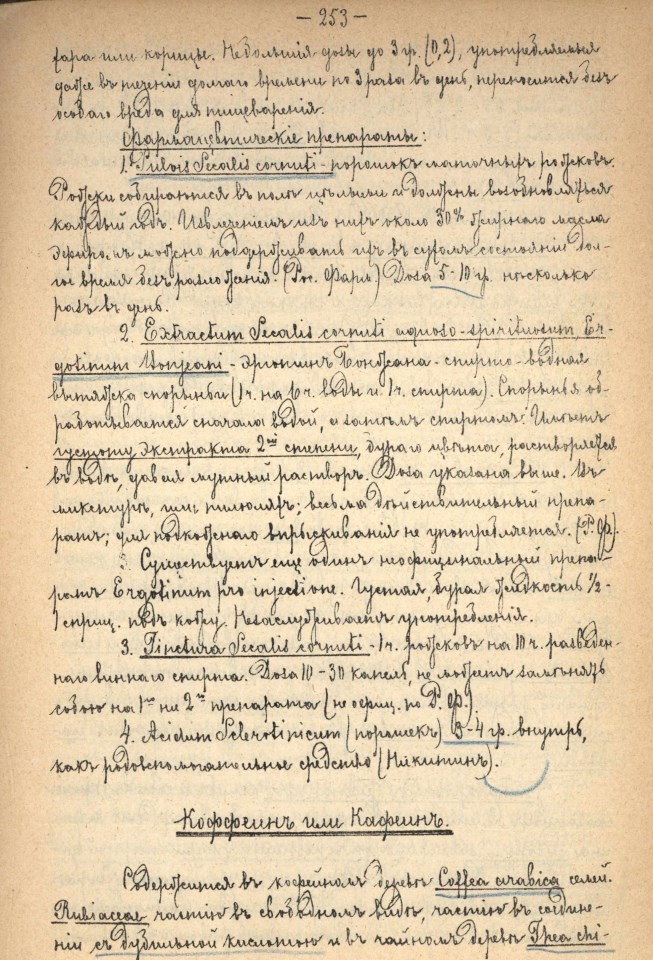 — 253 —
хара или корицы. Небольшія дозы до 3 гр. (0,2), употребляемыя
даже въ теченіи долгаго времени по 3 раза въ день, переносится безъ
особаго вреда для пищеваренія.
Фармацевтическіе препараты:
1. Pulvis Secalis cornuti - порошокъ маточныхъ рожковъ.
Рожки собираются въ полѣ цѣлыми и должны возобновляться
каждый годъ. Извлеченіемъ изъ нихъ около 30% жирнаго масла
эфиромъ можно поддерживать ихъ въ сухомъ состояніи дол-
гое время безъ разложенія. (Рос. Фарм.) Доза 5-10 гр. нѣсколько
разъ въ день.
2. Extractum Secalis cornuti aquoso-spirituosum, Er-
gotinum Bonjeani - эрготинъ Бонжана - спирто-водная
вытяжка спорыньи (1 ч. на 6 ч. воды и 1 ч. спирта). Спорынья об-
работывается сначала водой, а затѣмъ спиртомъ. Имѣетъ
густоту экстракта 2ой степени, бураго цвѣта, растворяется
въ водѣ, давая мутный растворъ. Доза указана выше. Въ
микстурѣ, или пилюляхъ; весьма дѣйствительный препа-
ратъ; для подкожнаго впрыскиванія не употребляется. (Р. Ф.).
3. Существуетъ еще одинъ неофицинальный препа-
ратъ Ergotinum pro injectione. Густая, бурая жидкость ½-
1 сприц. подъ кожу. Незаслуживаетъ употребленія.
3. Tinctura Secalis cornuti - 1 ч. рожковъ на 10 ч. разведен-
наго виннаго спирта. Доза 10-30 капель, не можетъ замѣнять
собою ни 1го ни 2го препарата (не офиц. по Р. Ф.)
4. Acidum Sclerotinicum (порошекъ) 3-4 гр. внутрь,
какъ родовспомогательное средство (Никитинъ).
Коффеинъ или Кафеинъ.
Содержится въ кофейномъ деревѣ Coffea arabica семей.
Rubiaceae частію въ свободномъ видѣ, частію въ соедине-
ніи съ дубильной кислотою и въ чайномъ деревѣ Thea chi-